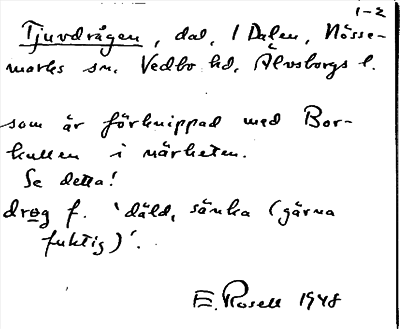 1-2
Tjuvdrågen, dal, i Dalen, Nösse-
marks sn. Vedbo hd, Älvsborgs l.
som är förknippad med Bor-
kullen i närheten.
Se detta!
drog f. 'däld, sänka (gärna
fuktig)'.
E. Rosell 1948